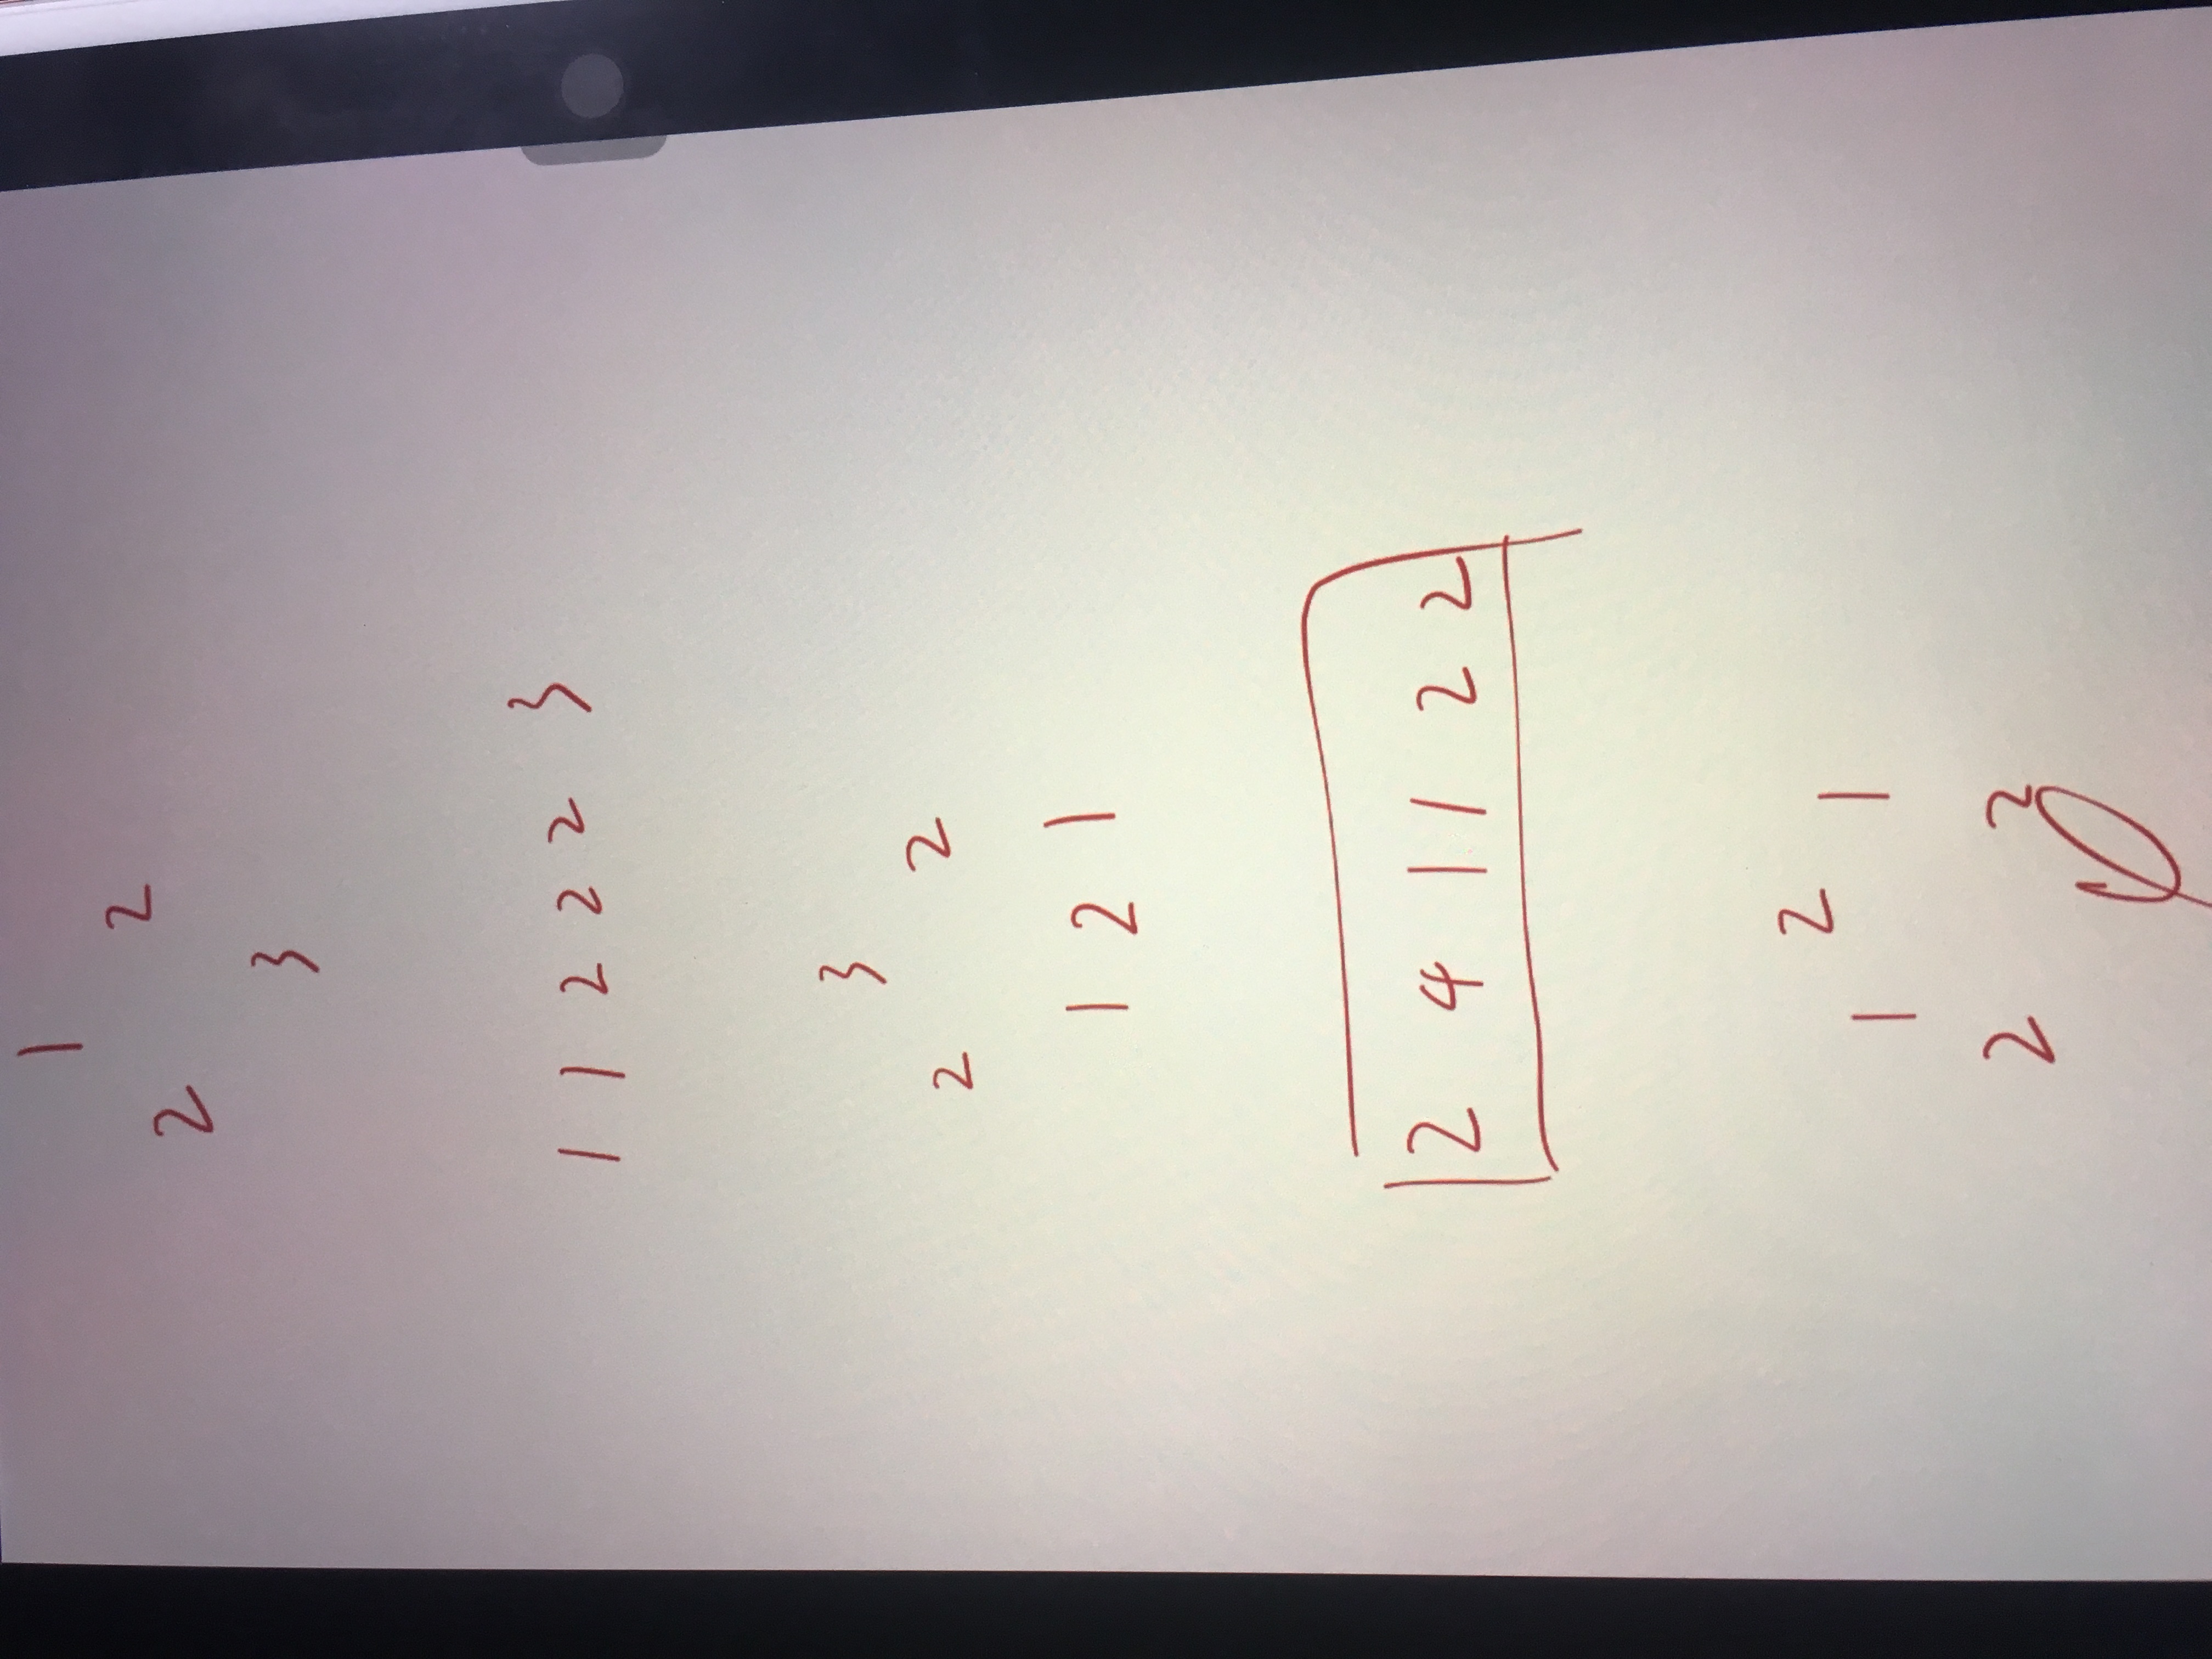 1
2 2
3
1 1 2 2 2 3
3
2 2
1 2 1
2 4 1 1 2 2
2
1 1
2 2